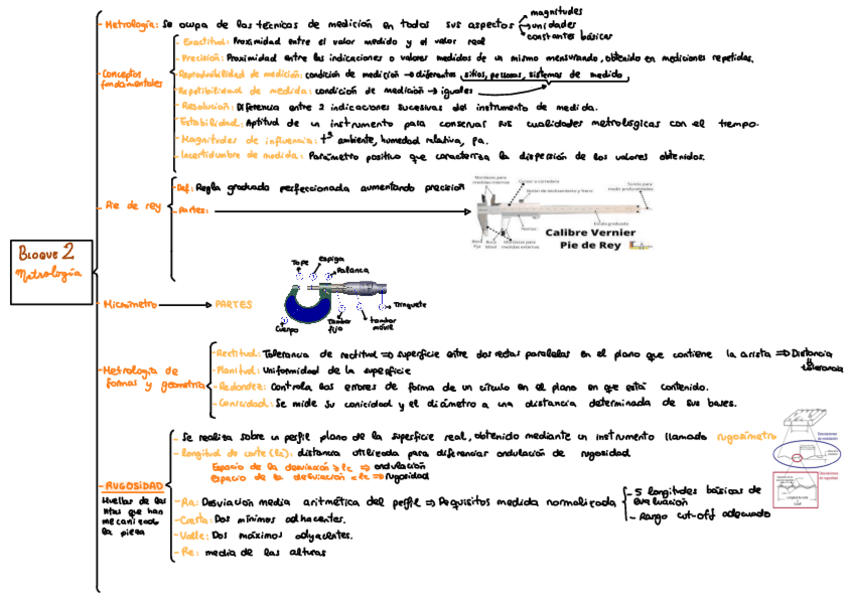 Bloque 2
Metrología
- Metrología: Se ocupa de las técnicas de medición en todos sus aspectos
magnitudes
unidades
constantes básicas
- Conceptos fundamentales
- Exactitud: Proximidad entre el valor medido y el valor real
- Precisión: Proximidad entre las indicaciones o valores medidos de un mismo mensurando, obtenido en mediciones repetidas.
- Reproducibilidad de medición: condición de medición → diferentes sitios, personas, sistemas de medida
- Repetibilidad de medida: condición de medición → iguales
- Resolución: Diferencia entre 2 indicaciones sucesivas del instrumento de medida.
- Estabilidad: Aptitud de un instrumento para conservar sus cualidades metrológicas con el tiempo.
- Magnitudes de influencia: tª ambiente, humedad relativa, Pa.
- Incertidumbre de medida: Parámetro positivo que caracteriza la dispersión de los valores obtenidos.
- Pie de rey
- Def: Regla graduada perfeccionada aumentando precisión
- Partes:
Mordazas para medidas internas
Sonda para medir profundidades
Escala graduada
Nonius
Mordazas para medidas externas
Calibre Vernier
Pie de Rey
- Micrómetro → PARTES
Tope
espiga
Palanca
Trinquete
tambor móvil
Tambor fijo
Cuerpo
- Metrología de formas y geometría
- Rectitud: Tolerancia de rectitud ⇒ superficie entre dos rectas paralelas en el plano que contiene la arista ⇒ Distancia = tolerancia
- Planitud: Uniformidad de la superficie
- Redondez: Controla los errores de forma de un círculo en el plano en que está contenido.
- Conicidad: Se mide su conicidad y el diámetro a una distancia determinada de sus bases.
- RUGOSIDAD
Huellas de las
que han
mecanizado
la pieza
- Se realiza sobre un perfil plano de la superficie real, obtenido mediante un instrumento llamado rugosímetro
- longitud de corte (lc): distancia utilizada para diferenciar ondulación de rugosidad
Espacio de la desviación > lc ⇒ ondulación
Espacio de la desviación < lc ⇒ rugosidad
- Ra: Desviación media aritmética del perfil ⇒ Requisitos medida normalizada
- 5 longitudes básicas de evaluación
- Rango cut-off adecuado
- Cresta: Dos mínimos adhacentes.
- Valle: Dos máximos adyacentes.
- Rc: media de las alturas